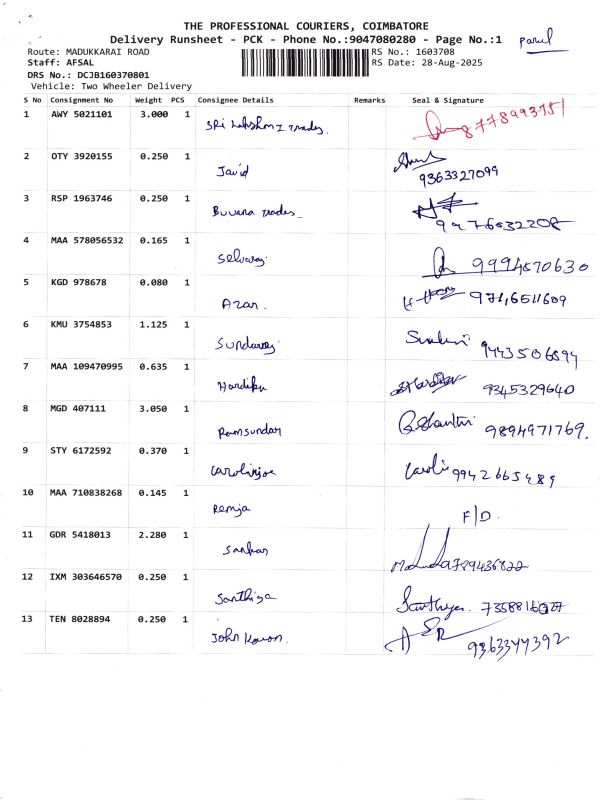 THE PROFESSIONAL COURIERS, COIMBATORE
Delivery Runsheet - PCK - Phone No.:9047080280 - Page No.:1
Route: MADUKKARAI ROAD RS No.: 1603708
Staff: AFSAL RS Date: 28-Aug-2025
DRS No.: DCJB160370801
Vehicle: Two Wheeler Delivery
S No Consignment No Weight PCS Consignee Details Remarks Seal & Signature
1 AWY 5021101 3.000 1 Sri Lakshmi Trades.
2 OTY 3920155 0.250 1 Javid 9363327099
3 RSP 1963746 0.250 1 Buvana Trades
4 MAA 578056532 0.165 1 Selvaraj 9994870630
5 KGD 978678 0.080 1 Azar.
6 KMU 3754853 1.125 1 Sundarraj
7 MAA 109470995 0.635 1 Hardika 9345329640
8 MGD 407111 3.050 1 Ramsundar 9894971769.
9 STY 6172592 0.370 1 9942665489
10 MAA 710838268 0.145 1 Remja F/D
11 GDR 5418013 2.280 1 Sankar
12 IXM 303646570 0.250 1 Santhiya
13 TEN 8028894 0.250 1 John 9363344392